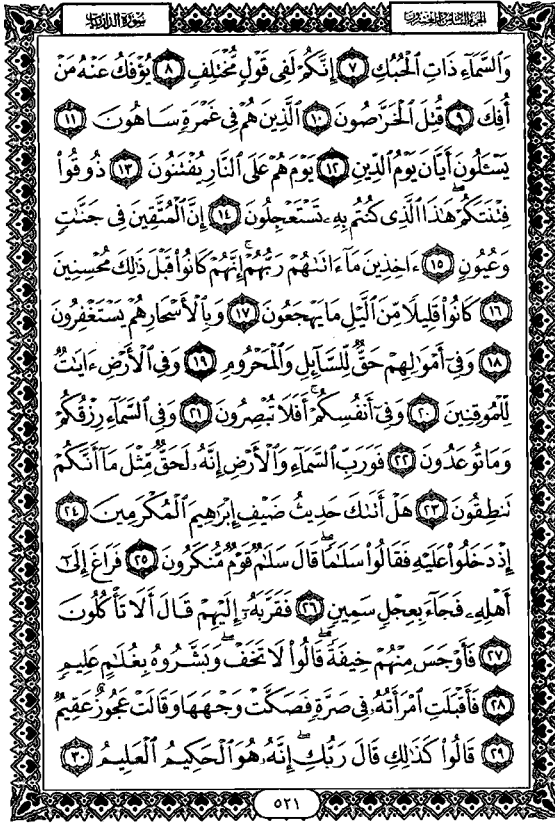 سورة الذاريات
الجزء السادس والعشرون
وَالسَّمَآءِ ذَاتِ الْحُبُكِ ٧ إِنَّكُمْ لَفِى قَوْلٍ مُّخْتَلِفٍ ٨ يُؤْفَكُ عَنْهُ مَنْ
أُفِكَ ٩ قُتِلَ الْخَرَّٰصُونَ ١٠ الَّذِينَ هُمْ فِى غَمْرَةٍ سَاهُونَ ١١
يَسْـَٔلُونَ أَيَّانَ يَوْمُ الدِّينِ ١٢ يَوْمَ هُمْ عَلَى النَّارِ يُفْتَنُونَ ١٣ ذُوقُوا۟
فِتْنَتَكُمْ هَٰذَا الَّذِى كُنتُم بِهِۦ تَسْتَعْجِلُونَ ١٤ إِنَّ الْمُتَّقِينَ فِى جَنَّٰتٍ
وَعُيُونٍ ١٥ ءَاخِذِينَ مَآ ءَاتَىٰهُمْ رَبُّهُمْ ۚ إِنَّهُمْ كَانُوا۟ قَبْلَ ذَٰلِكَ مُحْسِنِينَ
١٦ كَانُوا۟ قَلِيلًا مِّنَ الَّيْلِ مَا يَهْجَعُونَ ١٧ وَبِالْأَسْحَارِ هُمْ يَسْتَغْفِرُونَ
١٨ وَفِىٓ أَمْوَٰلِهِمْ حَقٌّ لِّلسَّآئِلِ وَالْمَحْرُومِ ١٩ وَفِى الْأَرْضِ ءَايَٰتٌ
لِّلْمُوقِنِينَ ٢٠ وَفِىٓ أَنفُسِكُمْ ۚ أَفَلَا تُبْصِرُونَ ٢١ وَفِى السَّمَآءِ رِزْقُكُمْ
وَمَا تُوعَدُونَ ٢٢ فَوَرَبِّ السَّمَآءِ وَالْأَرْضِ إِنَّهُۥ لَحَقٌّ مِّثْلَ مَآ أَنَّكُمْ
تَنطِقُونَ ٢٣ هَلْ أَتَىٰكَ حَدِيثُ ضَيْفِ إِبْرَٰهِيمَ الْمُكْرَمِينَ ٢٤
إِذْ دَخَلُوا۟ عَلَيْهِ فَقَالُوا۟ سَلَٰمًا ۖ قَالَ سَلَٰمٌ قَوْمٌ مُّنكَرُونَ ٢٥ فَرَاغَ إِلَىٰٓ
أَهْلِهِۦ فَجَآءَ بِعِجْلٍ سَمِينٍ ٢٦ فَقَرَّبَهُۥٓ إِلَيْهِمْ قَالَ أَلَا تَأْكُلُونَ
٢٧ فَأَوْجَسَ مِنْهُمْ خِيفَةً ۖ قَالُوا۟ لَا تَخَفْ ۖ وَبَشَّرُوهُ بِغُلَٰمٍ عَلِيمٍ
٢٨ فَأَقْبَلَتِ امْرَأَتُهُۥ فِى صَرَّةٍ فَصَكَّتْ وَجْهَهَا وَقَالَتْ عَجُوزٌ عَقِيمٌ
٢٩ قَالُوا۟ كَذَٰلِكِ قَالَ رَبُّكِ ۖ إِنَّهُۥ هُوَ الْحَكِيمُ الْعَلِيمُ ٣٠
٥٢١